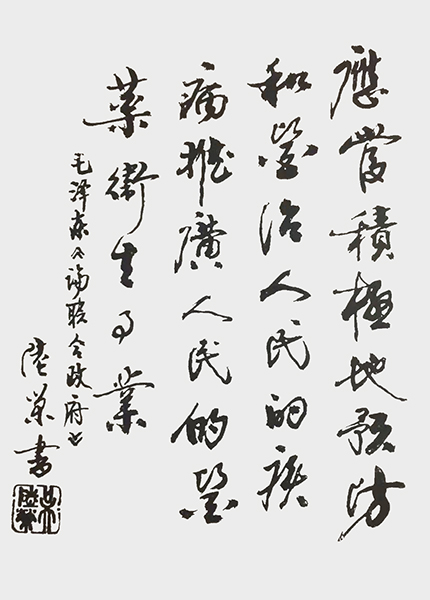 應當積極地預防
和醫治人民的疾
病推廣人民的醫
藥衛生事業
毛泽东《論联合政府》
陸榮書